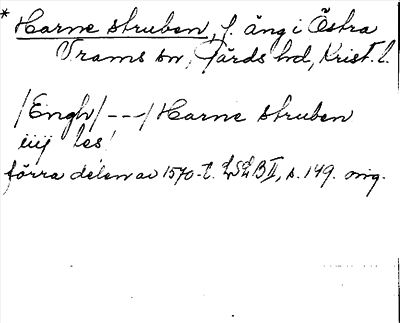 * Harne struben, f. äng i Östra
Vrams sn, Gärds hd, Krist. l.
/Engh/ --- / Harne struben
iiij les
förra delen av 1570-t. LSLB II, s. 149. mg.